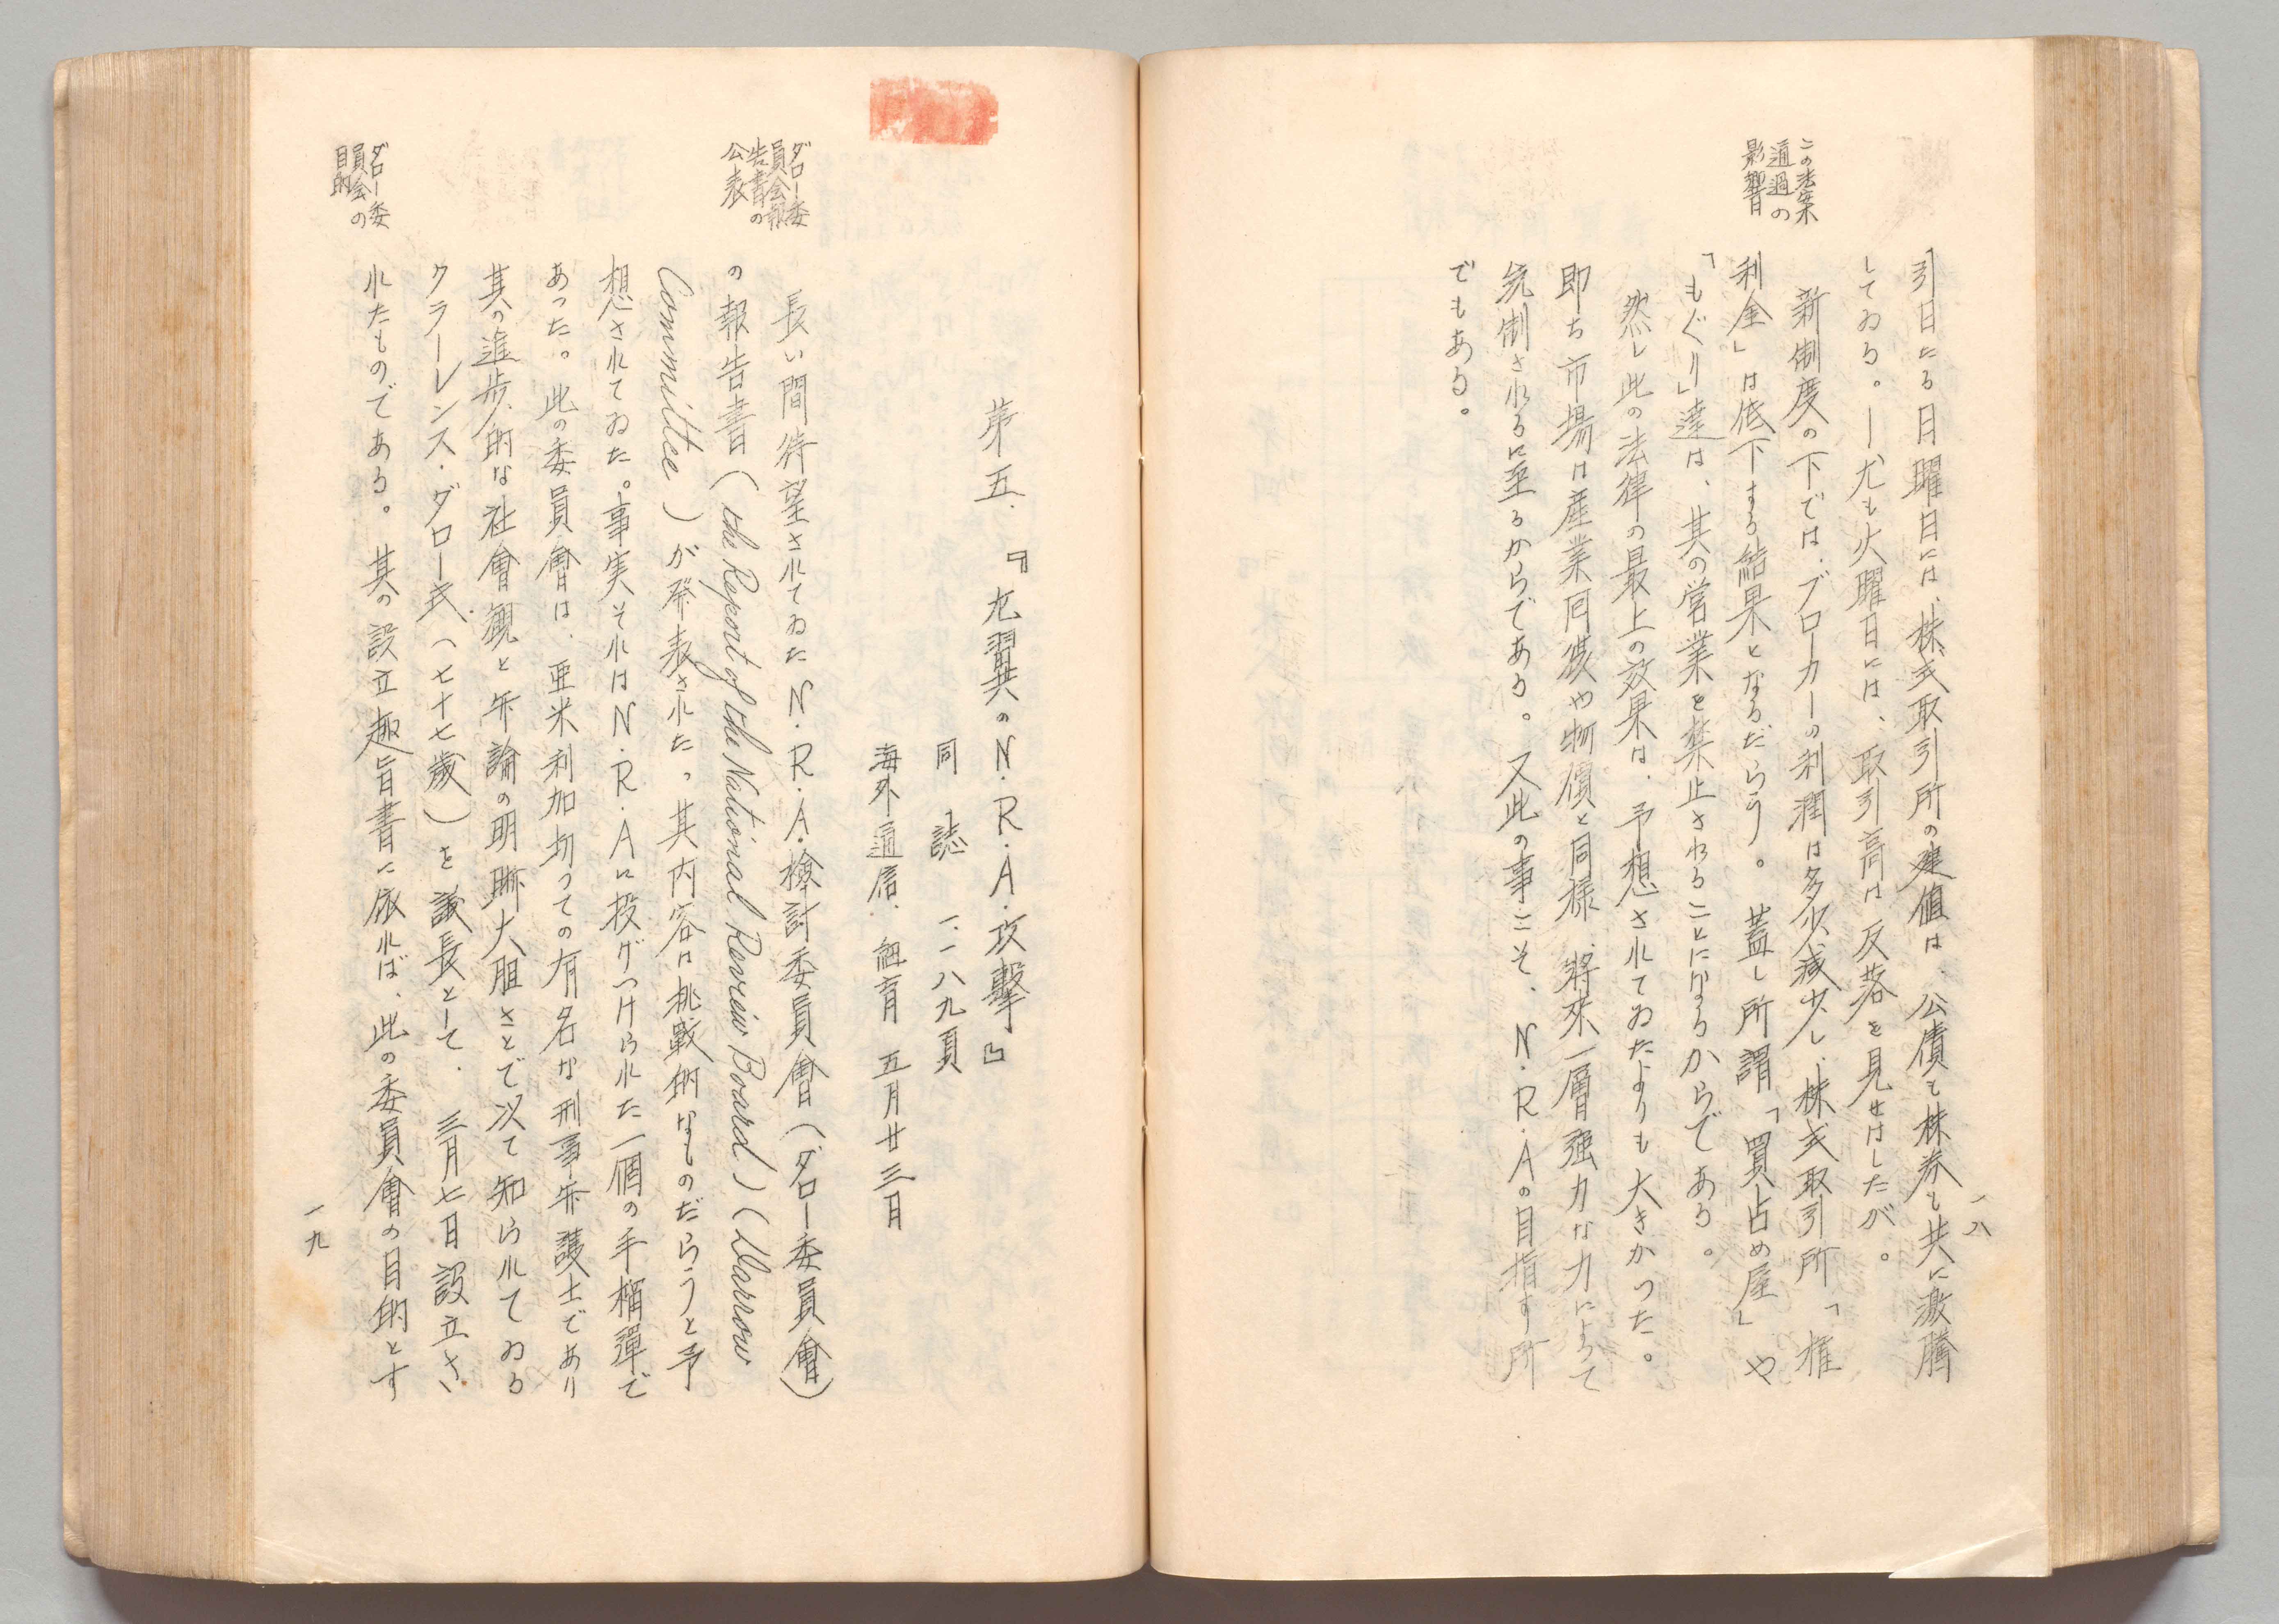 一八
この法案
通過の
影響
引日たる日曜日には、株式取引所の建値は、公債も株券も共に激騰
してゐる。―尤も火曜日には、取引高は反落を見せはしたが。
新制度の下では、ブローカーの利潤は多少減少し、株式取引所「権
利金」は低下する結果となるだらう。蓋し所謂「買占め屋」や
「もぐり」達は、其の営業を禁止されることになるからである。
然し此の法律の最上の効果は、予想されてゐたよりも大きかつた。
即ち市場は産業同様や物價と同様、將來一層強力な力によつて
統制されるに至るからである。又此の事こそ、N.R.Aの目指す所
でもある。
第五.『左翼のN.R.A.攻撃』
同誌 一.一八九頁
海外通信.紐育 五月廿三日
ダロー委
員会報
告書の
公表
長い間待望されてゐたN.R.A.檢討委員會(ダロー委員會)
の報告書(the Report of the National Review Board)(Darrow
Committee)が発表された。其内容は挑戰的なものだらうと予
想されてゐた。事実それはN.R.Aに投げつけられた一個の手榴彈で
あつた。此の委員會は、亜米利加切つての有名な刑事弁護士であり
其の進歩的な社會観と弁論の明晰大胆さとで以て知られてゐる
クラーレンス・ダロー氏(七十七歳)を議長として、三月七日設立さ
れたものである。其の設立趣旨書に依れば、此の委員會の目的とす
ダロー委
員会の
目的
一九